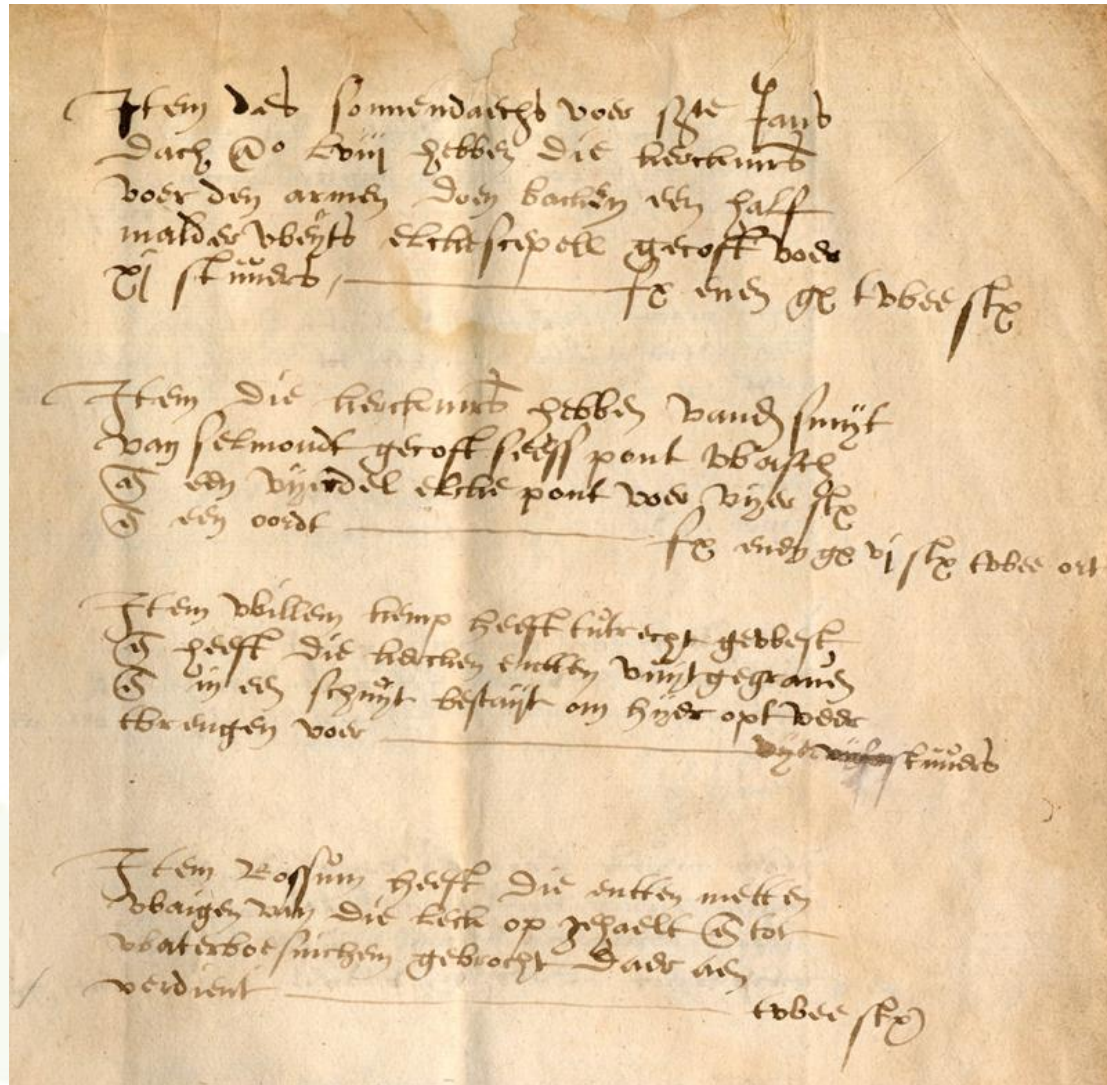 Item des sonnendaechs voer sṫe Jans
dach Ao Lviij hebben die kerckmrs
voer den armen doen backen een half
malder weyts elcke scepell gecoft voer
xj stuvers, fx enen gx twee stx
Item die kerckmrs hebben vanden smyt
van selmondt gecoft sess pont wasch
en een vyerdel elcke pont voer vyer stx
en een oordt fx enen gx vj stx twee ort
Item Willem kemp heeft tutrecht gewest
en heeft die kercken entten vuytgegraven
en in een schuyt bestayt om hyer opt veer
tbrengen voer stuvers
Item Rossum heeft die entten metten
waigen van die leck op gehaelt en tot
waterboesinchem gebrocht daer aen
verdient twee stx